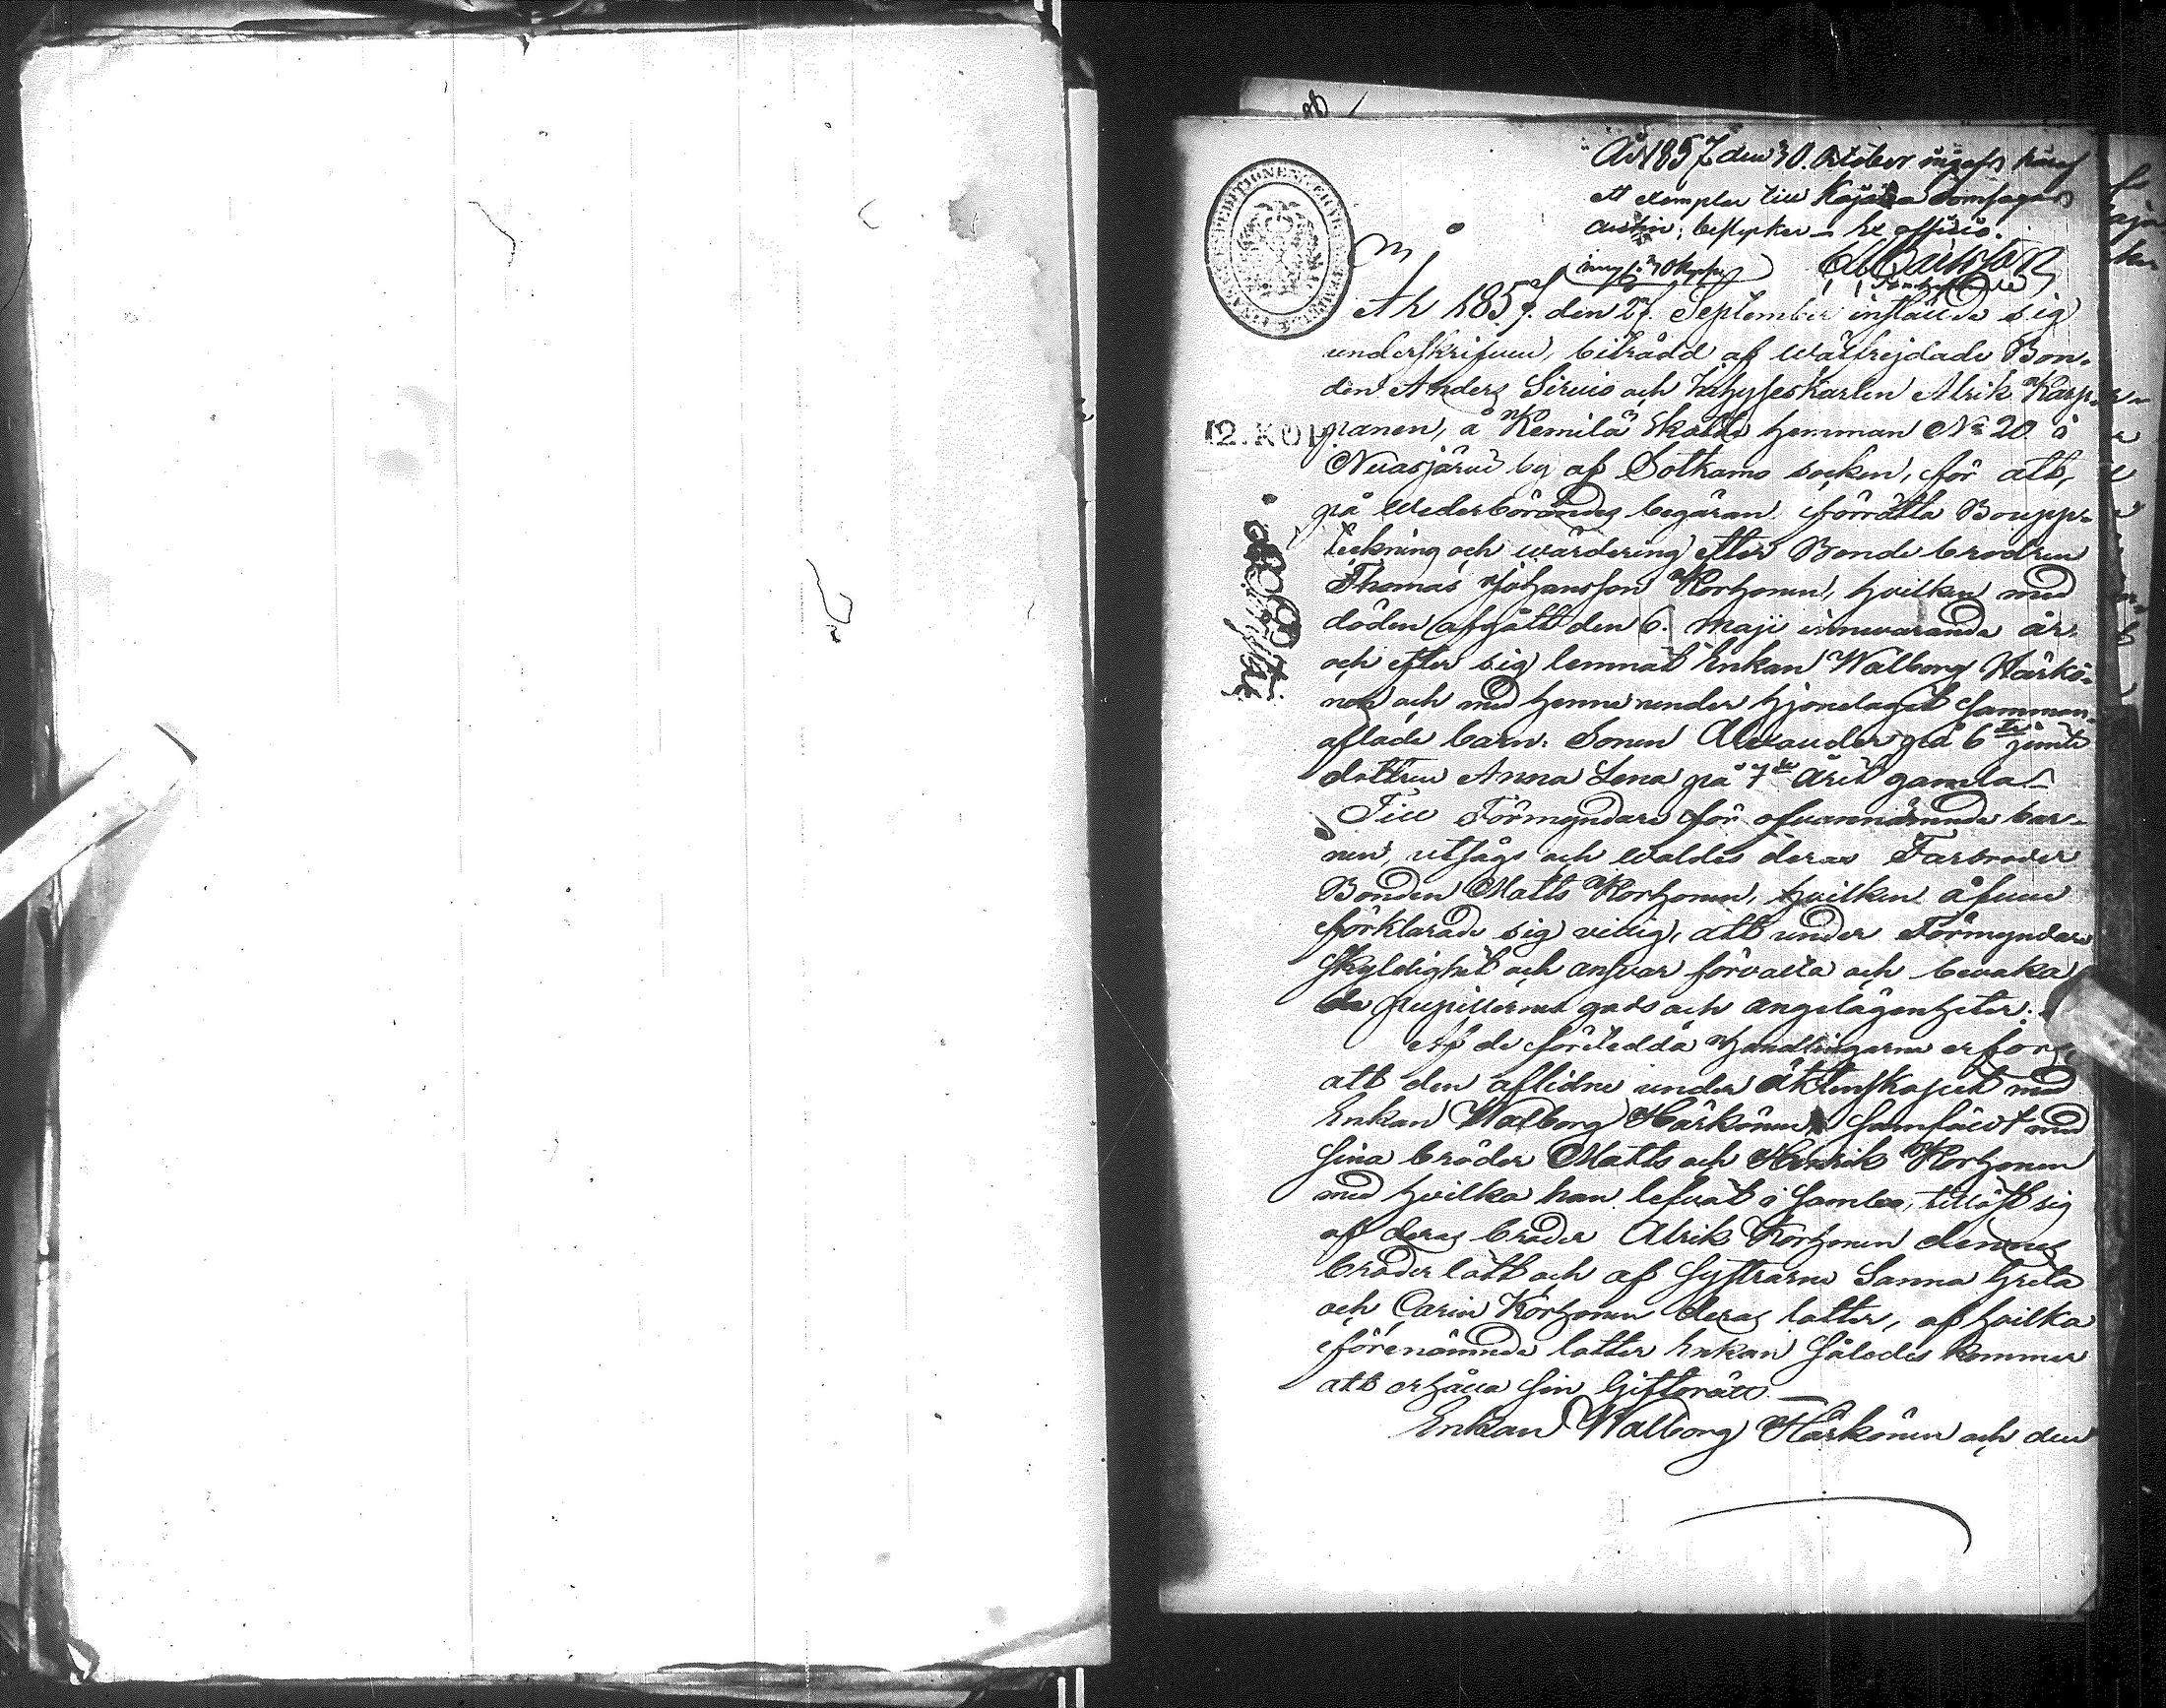 År 1857 den 30. October ingafs häraf
ett exemplar till Kajana Domsagas
archiv; bestyrker Ex officio.
År 1857. den 27. September inställde sig
underskrifven, biträdd af wälfrejdade Bon-
den Anders Sirvio och Inhyseskarlen Alrik Karp-
panen, å Kemilä Skatte hemman No 20 i
12. KOP.
Nuasjärvi by af Sotkamo socken, för att,
på wederbörandes begäran förrätta Boupp-
teckning och wärdering efter Bonde brodren
Thomas Johansson Korhonen, hvilken med
döden afgått den 6. Maji innevarande år.
och efter sig lemnat Enkan Walborg Härkö-
nen och med henne under hjonelaget samman-
aflade barn: Sonen Alexander på 6te jemte
dottren Anna Lena på 7de året gamla.
Till Förmyndare för ofvannämnde bar-
nen, utsågs och waldes deras Farbroder
Bonden Matts Korhonen, hvilken äfven
förklarade sig villig, att under Förmyndare
skyldighet och ansvar förvalta och bevaka
de pupillernas gods och angelägenheter.
Af de företedda handlingarne erfors,
att den aflidne under äktenskapet med
Enkan Walborg Härkönen, samfäldt med
sina bröder Matts och Henrik Korhonen
med hvilka han lefvat i sambo, tillöst sig
af deras broder Alrik Korhonen dennes
broders lott och af systrarne Sanna Greta
och Carin Korhonen deras lotter, af hvilka
förenämnde lotter Enkan således kommer
att erhålla sin Giftorätt.
Enkan Walborg Härkönen och den